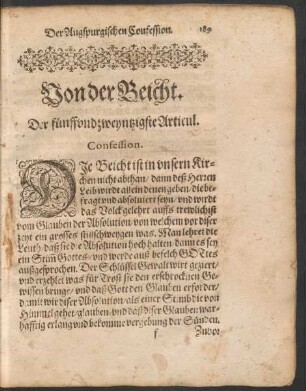 Der Augspurgischen Confession. 189
Von der Beicht.
Der fünffondzweyntzigste Articul.
Confession.
DJe Beicht ist in vnsern Kir-
chen nicht abthan / dann deß Herren
Leib wirdt allein denen geben / die be-
fragt vnd absoluiert seyn / vnd wirdt
das Volck gelehrt auffs trewlichst
vom Glauben der Absolution von welchem vor diser
zeyt ein grosses stillschwergen was. Man lehret die
Leuth / daß sie die Absolution hoch halten / dann es sey
ein Stim̃ Gottes / vnd werde auß befelch GOttes
außgesprochen. Der Schlüssel Gewalt wirt geziert /
vnd erzehlet was für Trost sie den erschrocknen Ge-
wissen bringe / vnd daß Gott den Glauben erforder /
damit wir diser Absolution, als einer Stimb die von
Himmel gehet / glauben / vnd daß diser Glauben war-
hafftig erlang vnd bekomme vergebung der Sünden.
f Zuuor